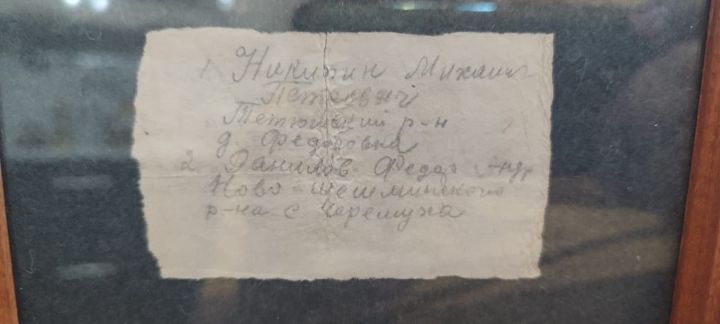 1 Никитин Михаил
Петрович
Тетюшский р-н
д. Федоровка
2 Данилов Федор Андр
Ново-шешминского
р-на с Черемуха